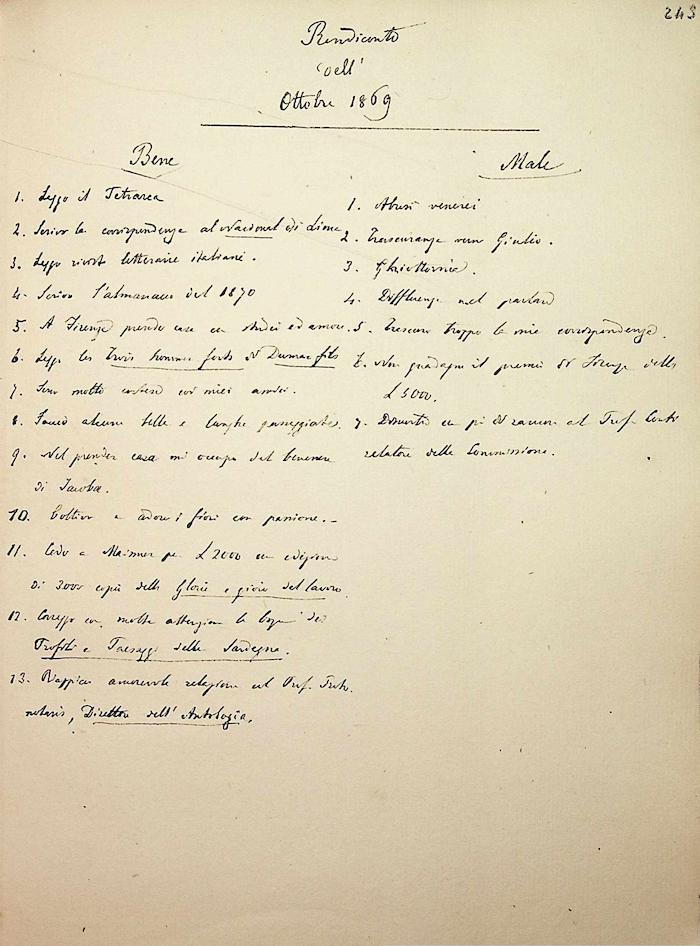 243
Rendiconto
dell'
Ottobre 1869
Bene
1. Leggo il Petrarca
2. Scrivo la corrispondenza al Nacional di Lima.
3. Leggo riviste letterarie italiane.
4. Scrivo l'almanacco del 1870
5. A Firenze prendo casa con studio ed amore.
6. Leggo les Trois hommes forts di Dumas fils
7. Sono molto cortese coi miei amici.
8. Faccio alcune belle e lunghe passeggiate.
9. Nel prender casa mi occupo del benessere
di Jacoba.
10. Coltivo e adoro i fiori con passione.-
11. Cedo a Maisner per £ 2000 una edizione
di 3000 copie delle Glorie e gioie del lavoro.
12. Correggo con molta attenzione le bozze dei
Profili e Paesaggi della Sardegna.
13. Rappicco amorevole relazione col Prof. Proto-
notaris, Direttore dell'Antologia.
Male
1. Abusi venerei
2. Trascuranze verso Giulio.
3. Ghiottornie.
4. Diffluenze nel parlare
5. Trascuro troppo la mia corrispondenza.
6. Non guadagno il premio di Firenze delle
£ 5000.
7. Dimostro un po' di rancore al Prof. Conti
relatore della Commissione.